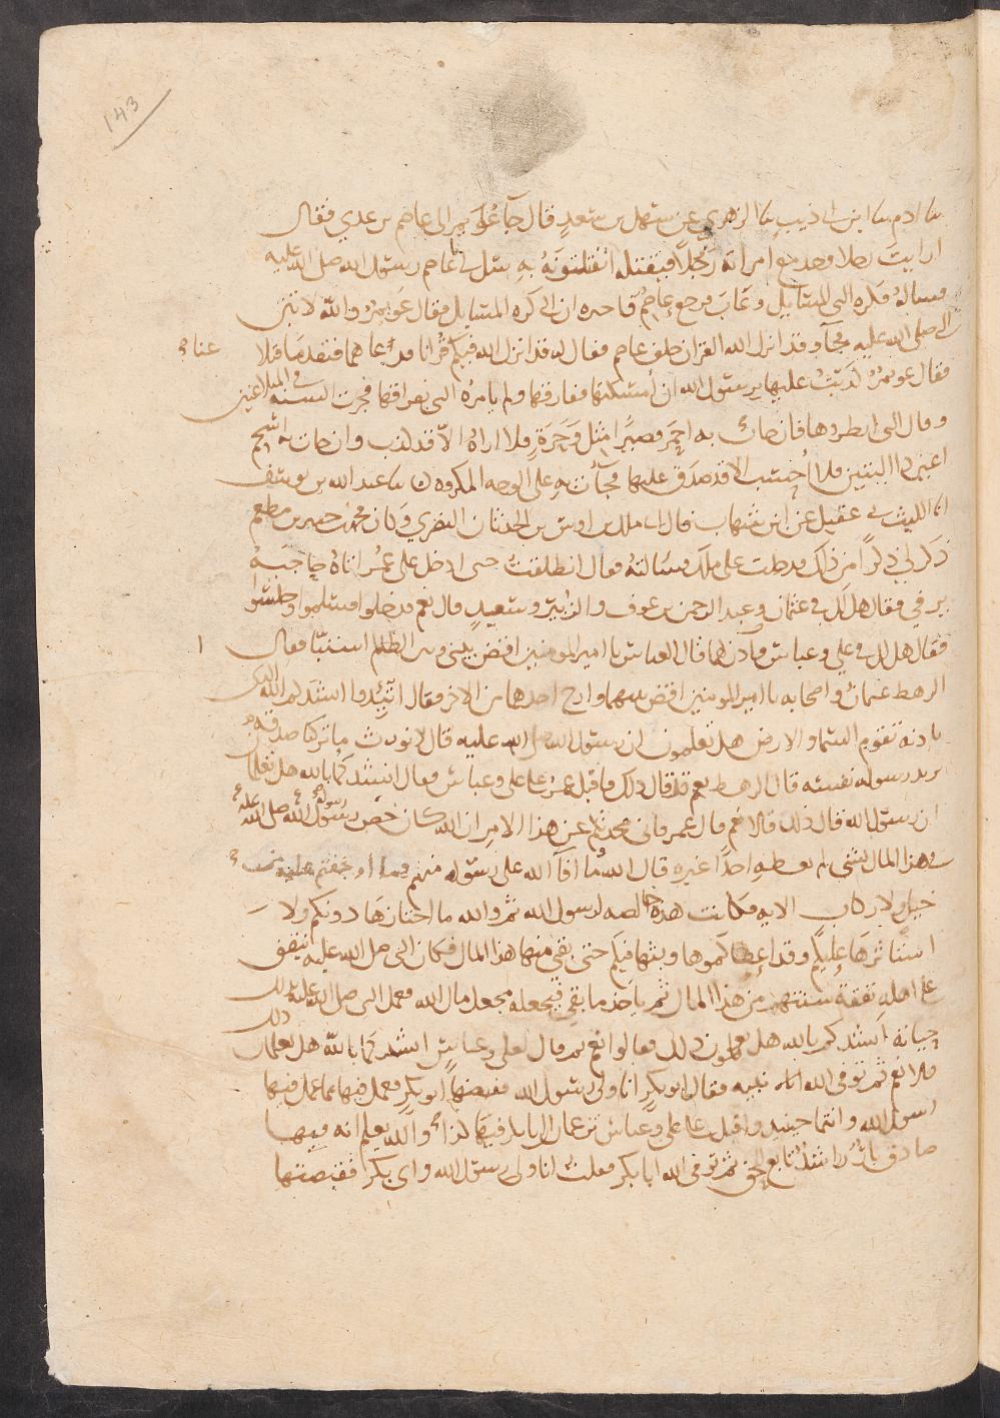 143
ثنا ادم ثنا ابن ابي ذيب ثنا الزهري عن سهل بن سعد قال جآ عويمر الى عاصم بن عدي فقال
ارايت رجلا وجد مع امراته رجلا فيقتله اتقتلونه به سل لي يا عاصم رسول الله صلى الله عليه
فساله فكره النبي المسايل وعاب فرجع عاصم فاخبره ان النبي كره المسايل فقال عويمر والله لاتين
النبي صلى الله عليه فجآ وقد انزل الله القران خلف عاصم فقال له قد انزل الله فيكم قرانا فدعا هما فتقدما فتلاعنا
فقال عويمر كذبت عليها يرسول الله ان امسكتها ففارقها ولم يامره النبي بفراقها فجرت السنة في المتلاعنين
وقال النبي انظروها فان جات به احمر قصيرا مثل وحرة فلا اراه الا قد كذب وان جات به اسحم
اعين ذا اليتين فلا احسب الا قد صدق عليها فجآت به على الوجه المكروه ثنا عبد الله بن يوسف
انا الليث ني عقيل عن ابن شهاب قال انا ملك بن اوس بن الحدثان النصري وكان محمد بن جبير بن مطعم
ذكر لي ذكرا من ذلك فدخلت على ملك فسالته فقال انطلقت حتى ادخل على عمر اتاه حاجبه
يرفي فقال هل لك في عثمان وعبد الرحمن بن عوف والزبير وسعيد قال نعم فدخلوا فسلموا وجلسوا
فقال هل لك في علي وعباس فاذن لهما قال العباس يا امير المومنين اقض بيني وبين الظالم استبا فقال
الرهط عثمان واصحابه يا امير المومنين اقض بينهما وارح احدهما من الاخر فقال اتيدوا انشدكم الله الذي
باذنه تقوم السما والارض هل تعلمون ان رسول الله صلى الله عليه قال لا نورث ما تركنا صدقة
يريد رسوله نفسه قال الرهط نعم قد قال ذلك فاقبل عمر على علي وعباس فقال انشدكما بالله هل تعلمان
ان رسول الله قال ذلك قالا نعم قال عمر فاني محدثكم عن هذا الامر ان الله كان خص رسوله صلى الله عليه
في هذا المال بشي لم يعطه احدا غيره قال الله ما افآ الله على رسوله منهم فما اوجفتم عليه من
خيل ولا ركاب الاية فكانت هذه خالصة لرسول الله ثم والله ما احتازها دونكم ولا
استاثرها عليكم وقد اعطاكموها وبثها فيكم حتى بقي منها هذا المال فكان النبي صلى الله عليه ينفق
على اهله نفقة سنتهم من هذا المال ثم ياخذ ما بقي فيجعله مجعل مال الله فعمل النبي صلى الله عليه بذلك
حياته انشدكم بالله هل تعلمون ذلك فقالوا نعم ثم قال لعلي وعباس انشدكما بالله هل تعلمان ذلك
قالا نعم ثم توفى الله نبيه فقال ابو بكر انا ولي رسول الله فقبضها ابو بكر فعمل فيها بما عمل فيها
رسول الله وانتما حينيذ واقبل على علي وعباس تزعمان ان ابا بكر فيها كذا والله يعلم انه فيها
صادق بار راشد تابع للحق ثم توفى الله ابا بكر فقلت انا ولي رسول الله وابي بكر فقبضتها